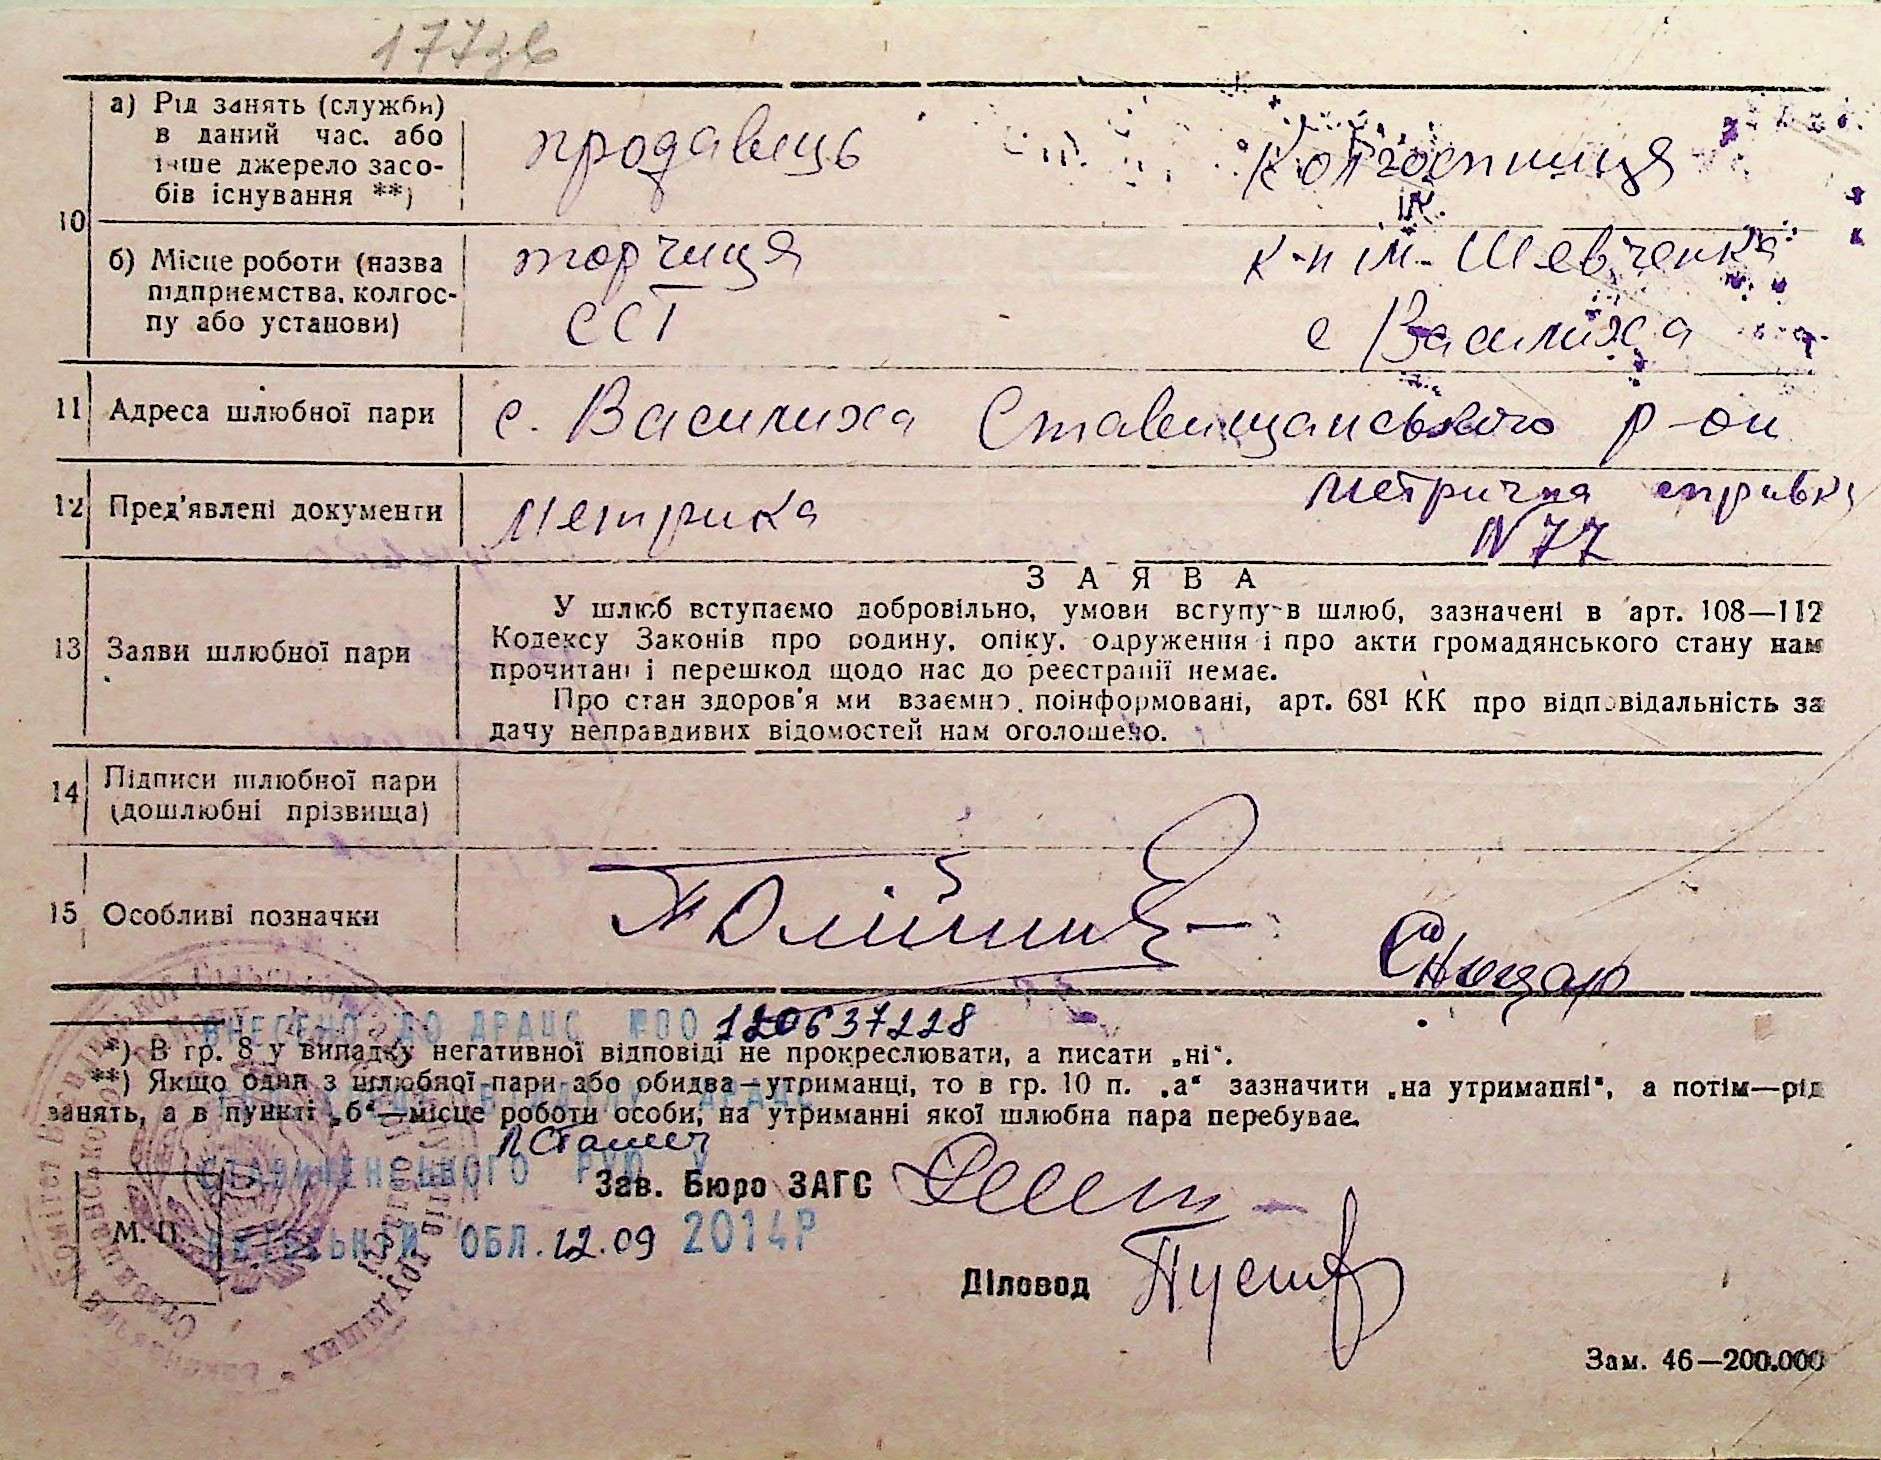 177зв
10
а) Рід занять (служби) в даний час, або інше джерело засобів існування **)
продавець
колгоспниця
б) Місце роботи (назва підприємства, колгоспу або установи)
торчиця
ССТ
к-п ім. Шевченка
с Василиха
11 Адреса шлюбної пари
с. Василиха Ставищанського р-он
12 Пред'явлені документи
метрика
метрична справка
N 77
13 Заяви шлюбної пари
ЗАЯВА
У шлюб вступаємо добровільно, умови вступу в шлюб, зазначені в арт. 108—112
Кодексу Законів про родину, опіку, одруження і про акти громадянського стану нам
прочитані і перешкод щодо нас до реєстрації немає.
Про стан здоров'я ми взаємно поінформовані, арт. 68¹ КК про відповідальність за
дачу неправдивих відомостей нам оголошено.
14 Підписи шлюбної пари
(дошлюбні прізвища)
15 Особливі позначки
Олійник
Сницар
ВНЕСЕНО ДО ДРАЦС №00 120637228
*) В гр. 8 у випадку негативної відповіді не прокреслювати, а писати „ні“.
**) Якщо один з шлюбної пари або обидва—утриманці, то в гр. 10 п. „а“ зазначити „на утриманні“, а потім—рід
занять, а в пункті „б“—місце роботи особи, на утриманні якої шлюбна пара перебуває.
Зав. Бюро ЗАГС
М. П.
ОБЛ. 12.09 2014Р
Діловод
Зам. 46—200.000